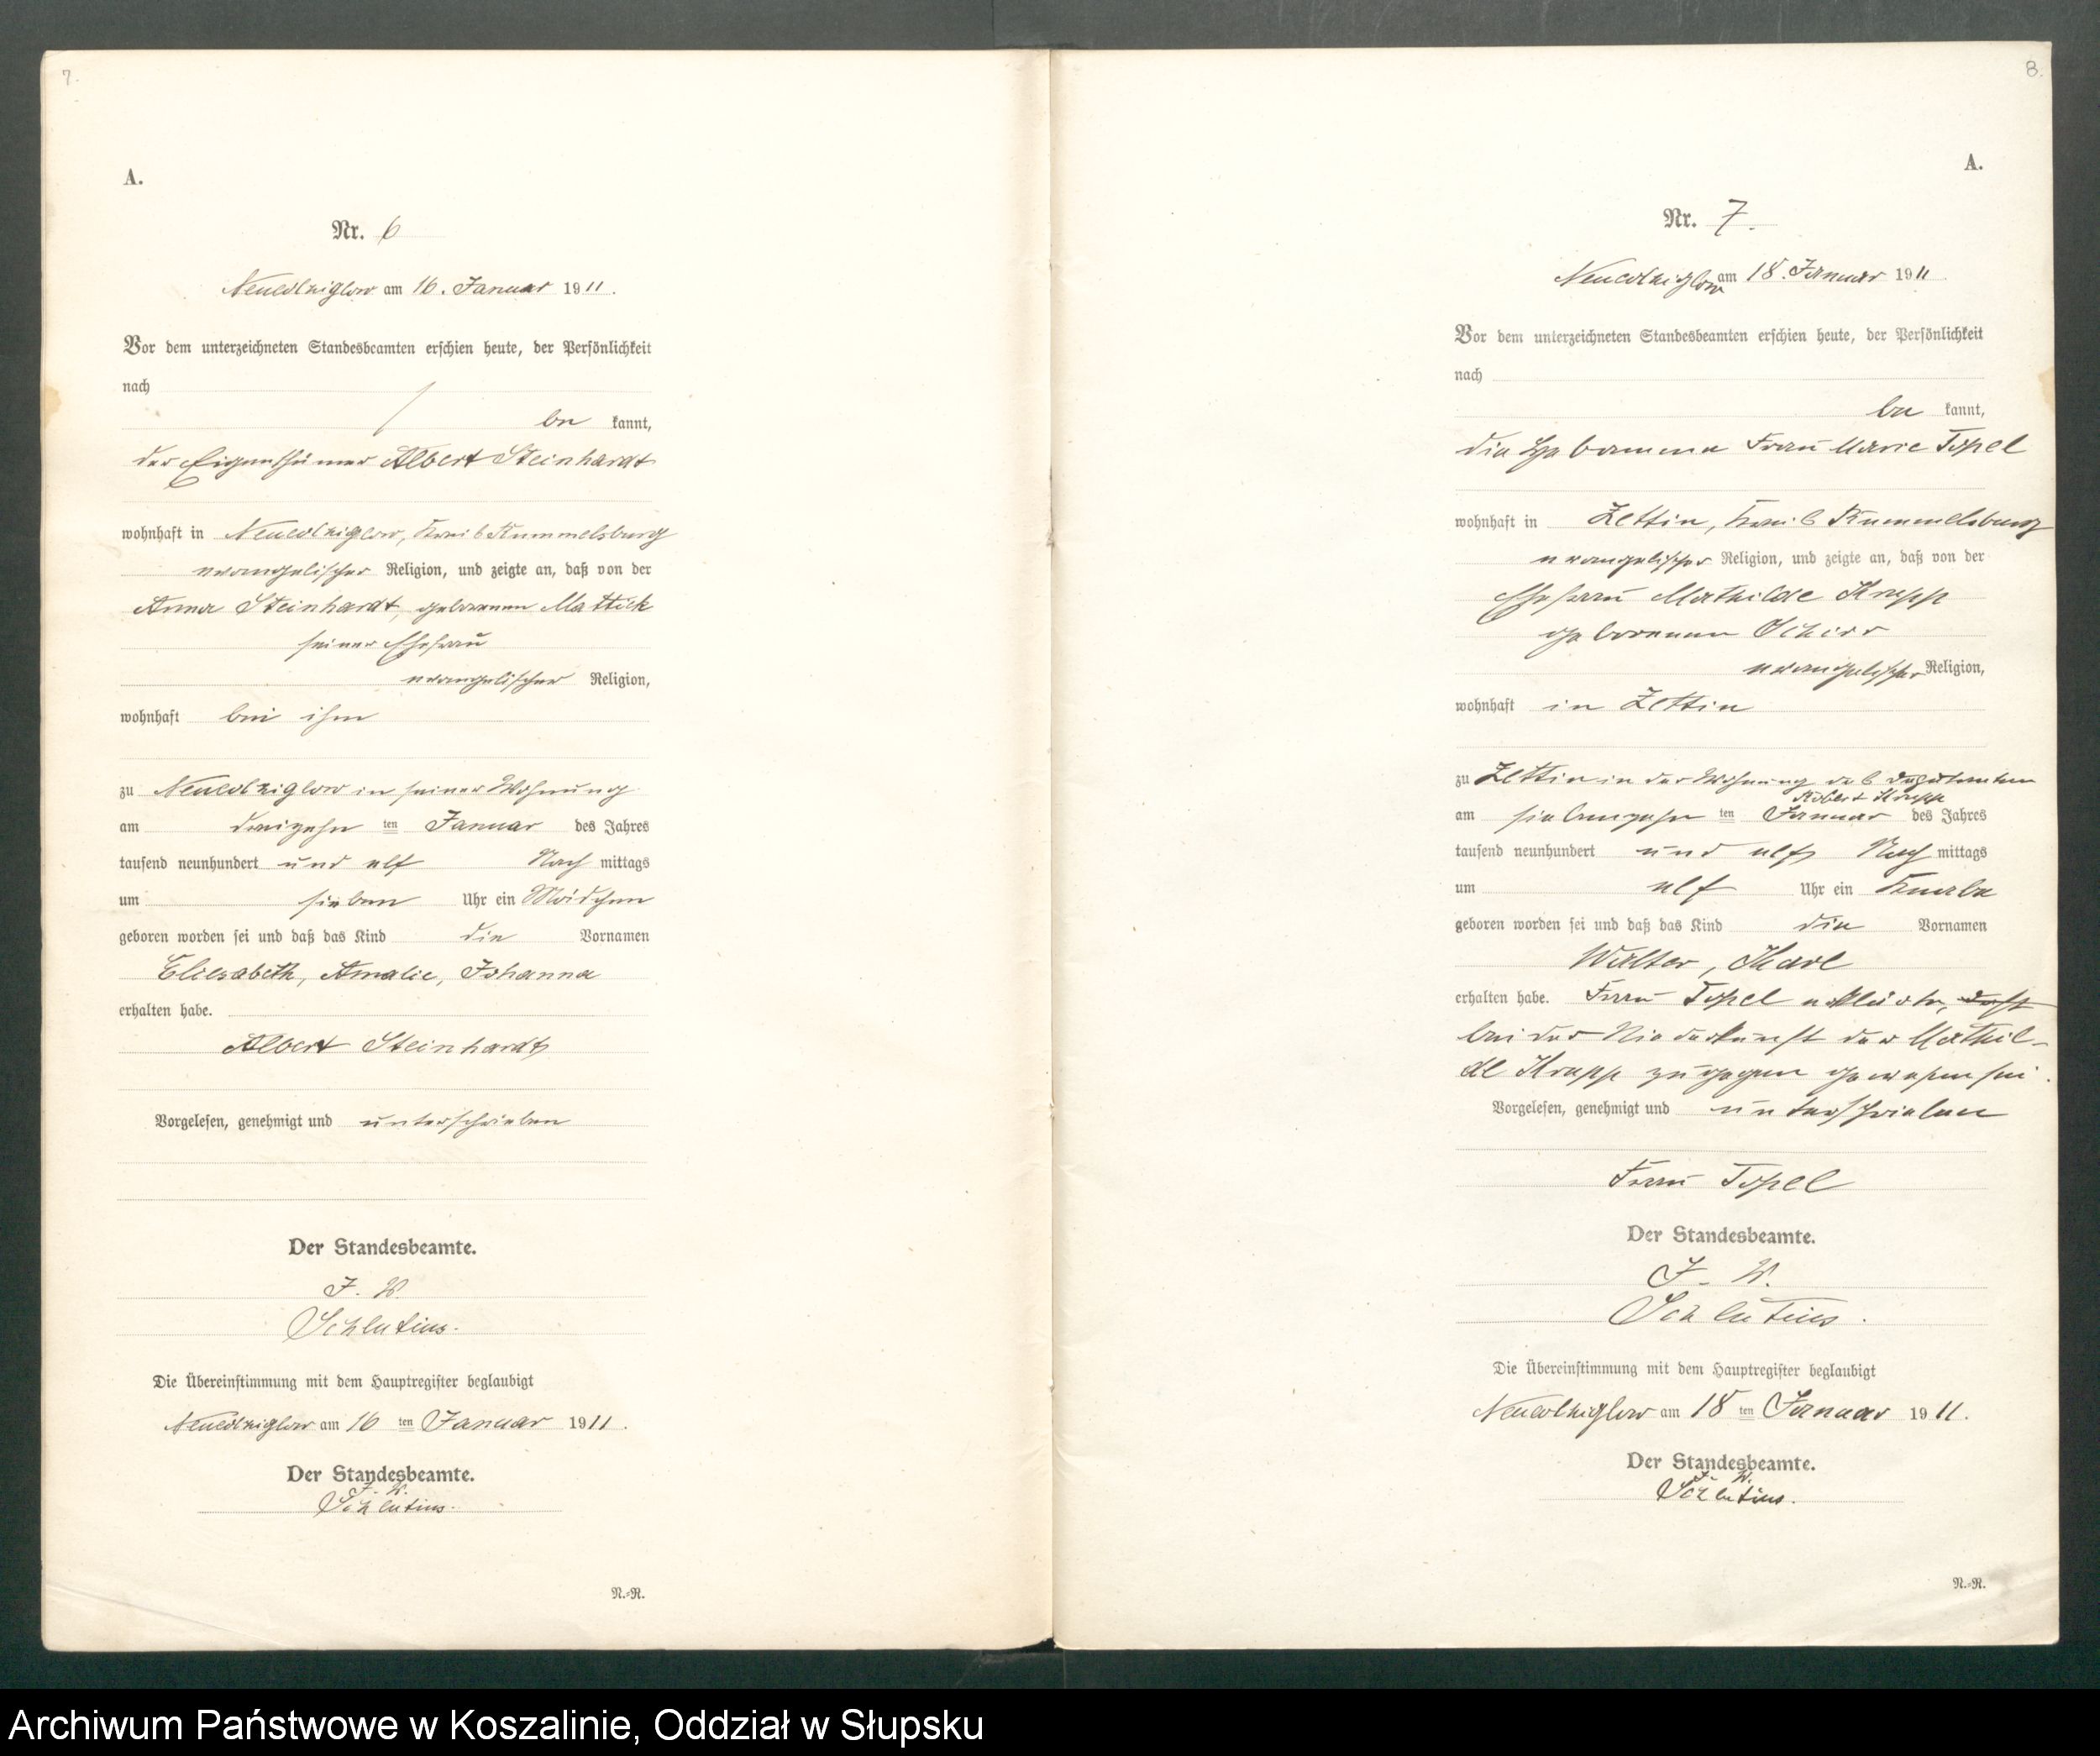 7.
A.
Nr. 6
Neukolziglow am 16. Januar 1911.
Vor dem unterzeichneten Standesbeamten erschien heute, der Persönlichkeit
nach
be kannt,
der Eigenthümer Albert Steinhardt
wohnhaft in Neukolziglow, Kreis Rummelsburg
evangelischer Religion, und zeigte an, daß von der
Anna Steinhardt, geborenen Mattick
seiner Ehefrau
evangelischer Religion,
wohnhaft bei ihm
zu Neukolziglow in seiner Wohnung
am dreizehn ten Januar des Jahres
tausend neunhundert und elf Nach mittags
um sieben Uhr ein Mädchen
geboren worden sei und daß das Kind die Vornamen
Eliesabeth, Amalie, Johanna
erhalten habe.
Albert Steinhardt
Vorgelesen, genehmigt und unterschrieben
Der Standesbeamte.
J. V.
Schlutius.
Die Übereinstimmung mit dem Hauptregister beglaubigt
Neukolziglow am 16 ten Januar 1911.
Der Standesbeamte.
J. V.
Schlutius.
N.-R.
8.
A.
Nr. 7.
Neukolziglow am 18. Januar 1911.
Vor dem unterzeichneten Standesbeamten erschien heute, der Persönlichkeit
nach
be kannt,
die Hebamme Frau Marie Topel
wohnhaft in Zettin, Kreis Rummelsburg
evangelischer Religion, und zeigte an, daß von der
Ehefrau Mathilde Krapp
geborenen Schirr
evangelischer Religion,
wohnhaft in Zettin
zu Zettin in der Wohnung des Deputanten
Robert Krapp
am siebenzehn ten Januar des Jahres
tausend neunhundert und elf Nach mittags
um elf Uhr ein Knabe
geboren worden sei und daß das Kind die Vornamen
Walter, Karl
erhalten habe. Frau Topel erklärte, daß
bei der Niederkunft der Mathil-
de Krapp zugegen gewesen sei.
Vorgelesen, genehmigt und unterschrieben
Frau Topel
Der Standesbeamte.
J. V.
Schlutius.
Die Übereinstimmung mit dem Hauptregister beglaubigt
Neukolziglow am 18 ten Januar 1911.
Der Standesbeamte.
J. V.
Schlutius.
N.-R.
Archiwum Państwowe w Koszalinie, Oddział w Słupsku